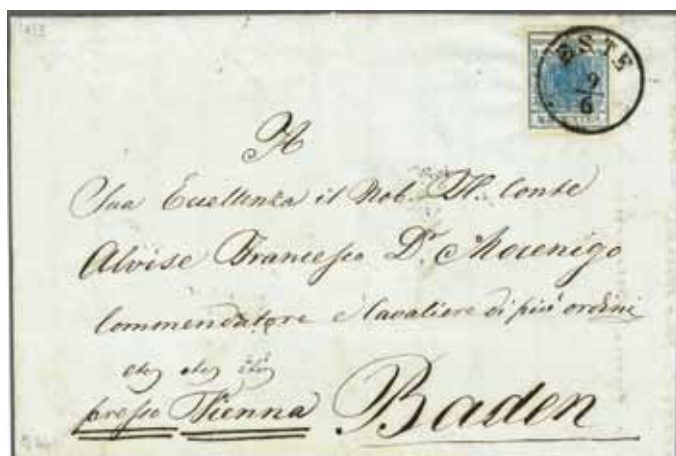 ESTE
9
6
A
Sua Eccellenza il Nob. H. Conte
Alvise Francesco Dr. Mocenigo
Commendatore e Cavaliere di più ordini
presso Vienna Baden